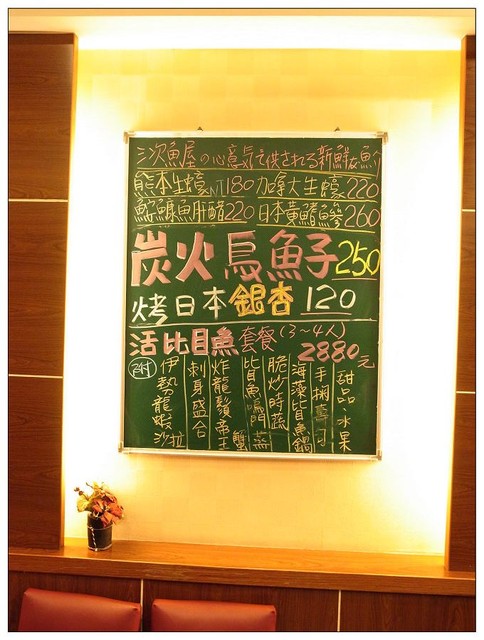 三次魚屋の心意気で供される新鮮な魚介
熊本生蠔NT180 加拿大生蠔220
鮟鱇魚肝醋220 日本黃鰭鰺260
炭火烏魚子250
烤日本銀杏120
活比目魚套餐(3~4人)
2880元
伊勢龍蝦沙拉
刺身盛合
炸龍鬚帝王蟹
比目魚鳴門蒸
脆炒時蔬
海藻比目魚鍋
手捲壽司
甜品、水果